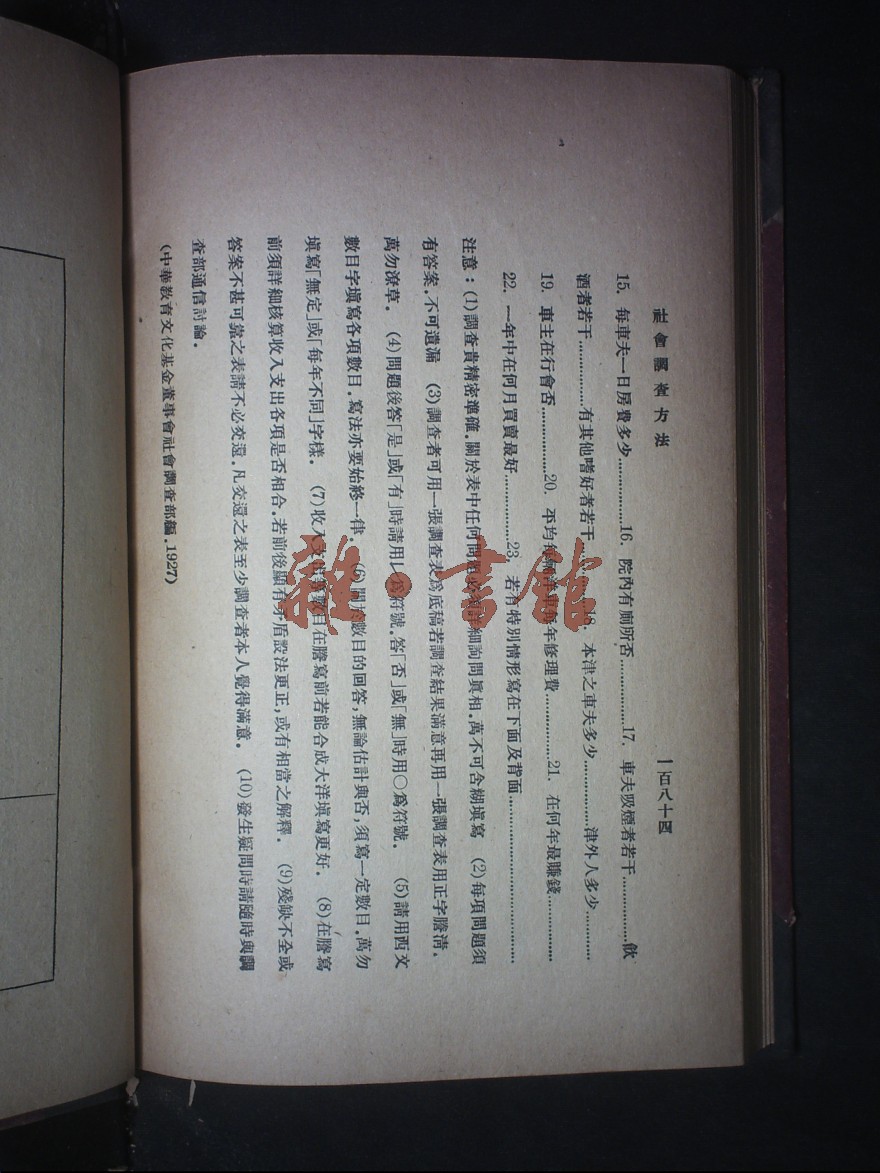 社會調查方法 一百八十四
15. 每車夫一日房費多少…………16. 院內有廁所否…………17. 車夫吸煙者若干…………飲
酒者若干…………有其他嗜好者若干…………18. 本津之車夫多少…………津外人多少…………
19. 車主在行會否…………20. 平均每輛洋車每年修理費…………21. 在何年最賺錢…………
22. 一年中在何月買賣最好…………23. 若有特別情形寫在下面及背面…………
注意:(1)調查貴精密準確．關於表中任何問題必須詳細詢問真相．萬不可含糊填寫 (2)每項問題須
有答案．不可遺漏 (3)調查者可用一張調查表爲底稿若調查結果滿意再用一張調查表用正字謄清．
萬勿潦草． (4)問題後答「是」或「有」時請用レ爲符號．答「否」或「無」時用〇爲符號． (5)請用西文
數目字填寫各項數目．寫法亦要始終一律．(6)關於數目的回答，無論估計與否，須寫一定數目．萬勿
填寫「無定」或「每年不同」字樣． (7)收入支出等數目在謄寫前若能合成大洋填寫更好． (8)在謄寫
前須詳細核算收入支出各項是否相合．若前後顯有矛盾設法更正，或有相當之解釋． (9)殘缺不全或
答案不甚可靠之表請不必交還．凡交還之表至少調查者本人覺得滿意． (10)發生疑問時請隨時與調
查部通信討論．
(中華教育文化基金董事會社會調查部編．1927)